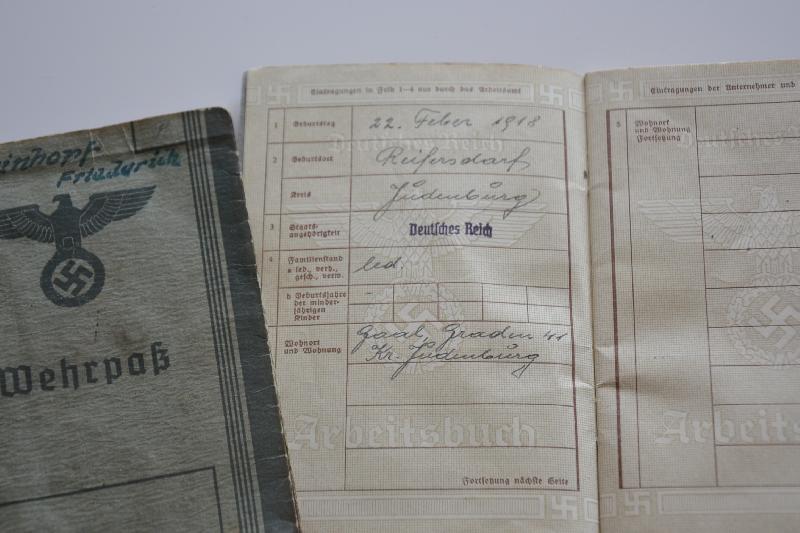 einhopf
Friederich
Wehrpaß
Eintragungen in Feld 1–4 nur durch das Arbeitsamt
1 Geburtstag 22. Feber 1918
2 Geburtsort Reifersdorf
Kreis Judenburg
3 Staats-
angehörigkeit Deutsches Reich
4 Familienstand
a led., verh.,
gesch., verw. led.
b Geburtsjahre
der minder-
jährigen
Kinder –
Wohnort
und Wohnung Gaal, Graden 41
Kr. Judenburg
Arbeitsbuch
Fortsetzung nächste Seite
Eintragungen der Unternehmer und
5 Wohnort
und Wohnung
Fortsetzung
Deutsches Reich
Arbeitsb